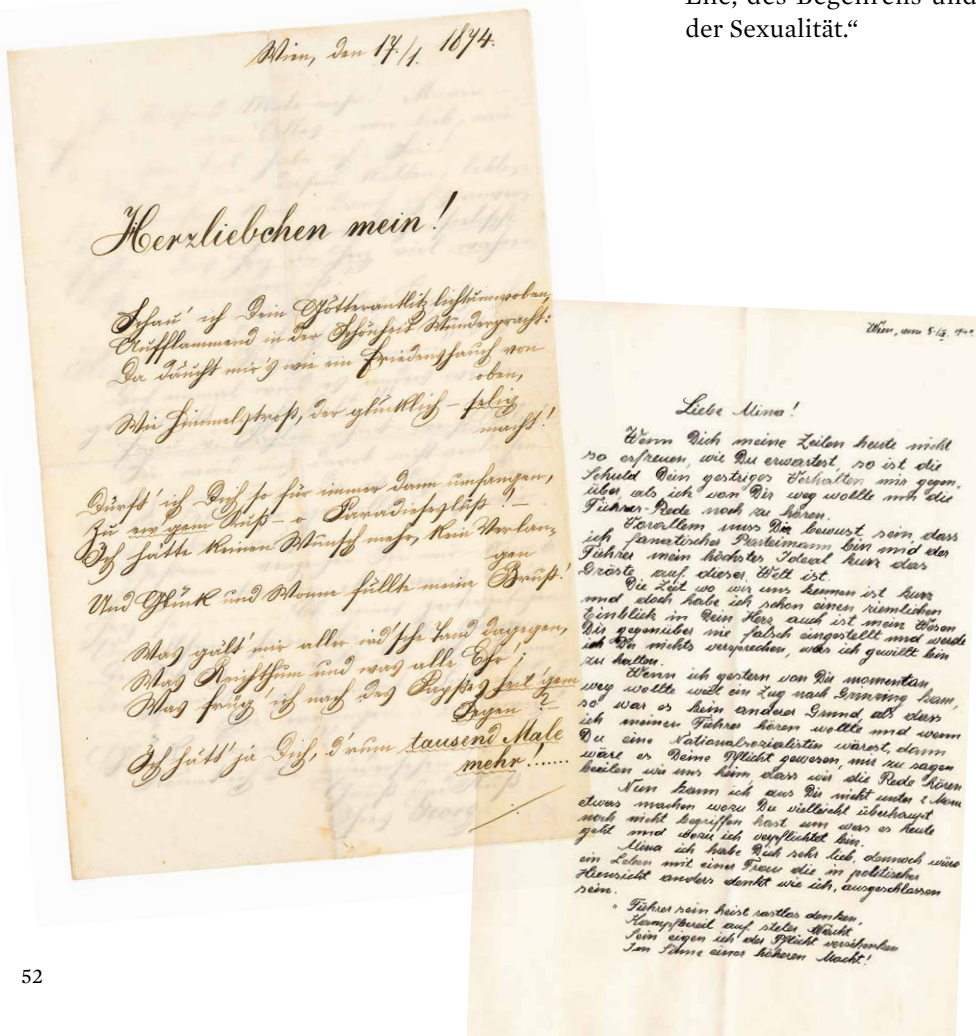 Ehe, des Begehrens und
der Sexualität.“
Wien, den 17./1. 1874.
Herzliebchen mein!
Schau' ich Dein Götterantlitz lichtumwoben,
Aufflammend in der Schönheit Wunderpracht:
Da däucht mir's wie ein Friedenshauch von
oben,
Wie Himmelstrost, der glücklich – selig
macht!
Dürft' ich Dich so für immer dann umfangen,
Zu ew'gem Kuß – o Paradieseslust! –
Ich hätte keinen Wunsch mehr, kein Verlan-
gen
Und Glück und Wonne füllte meine Brust!
Was gält' mir aller ird'sche Tand dagegen,
Was Reichthum und was alle Ehr',
Was früg' ich nach des Papstes heil'gem
Segen? –
Ich hätt' ja Dich, d'rum tausend Male
mehr!......
Wien, am
Liebe Mina!
Wenn Dich meine Zeilen heute nicht
so erfreuen, wie Du erwartest, so ist die
Schuld Dein gestriges Verhalten mir gegen-
über, als ich von Dir weg wollte um die
Führer-Rede noch zu hören.
Vorallem muss Dir bewust sein, dass
ich fanatischer Parteimann bin und der
Führer mein höchstes Ideal kurz das
Gröste auf dieser Welt ist.
Die Zeit wo wir uns kennen ist kurz
und doch habe ich schon einen ziemlichen
Einblick in Dein Herz auch ist mein Wesen
Dir gegenüber nie falsch eingestellt und werde
ich Dir nichts versprechen, was ich gewillt bin
zu halten.
Wenn ich gestern von Dir momentan
weg wollte weil ein Zug nach Grinzing kam,
so war es kein anderer Grund als dass
ich meinen Führer hören wollte und wenn
Du eine Nationalsozialistin wärest, dann
wäre es Deine Pflicht gewesen, mir zu sagen
beeilen wir uns heim, dass wir die Rede hören
Nun kann ich aus Dir nicht unter 2 Mon
etwas machen wozu Du vielleicht überhaupt
noch nicht begriffen hast um was es heute
geht und wozu ich verpflichtet bin.
Mina ich habe Dich sehr lieb, dennoch wäre
ein Leben mit einer Frau die in politischer
Hiensicht anders denkt wie ich, ausgeschlossen
sein.
„Führer sein heist rastlos denken,
Kampfbereit auf steter Wacht
Sein eigen ich der Pflicht verschenken
Im Sinne einer höheren Macht!
52